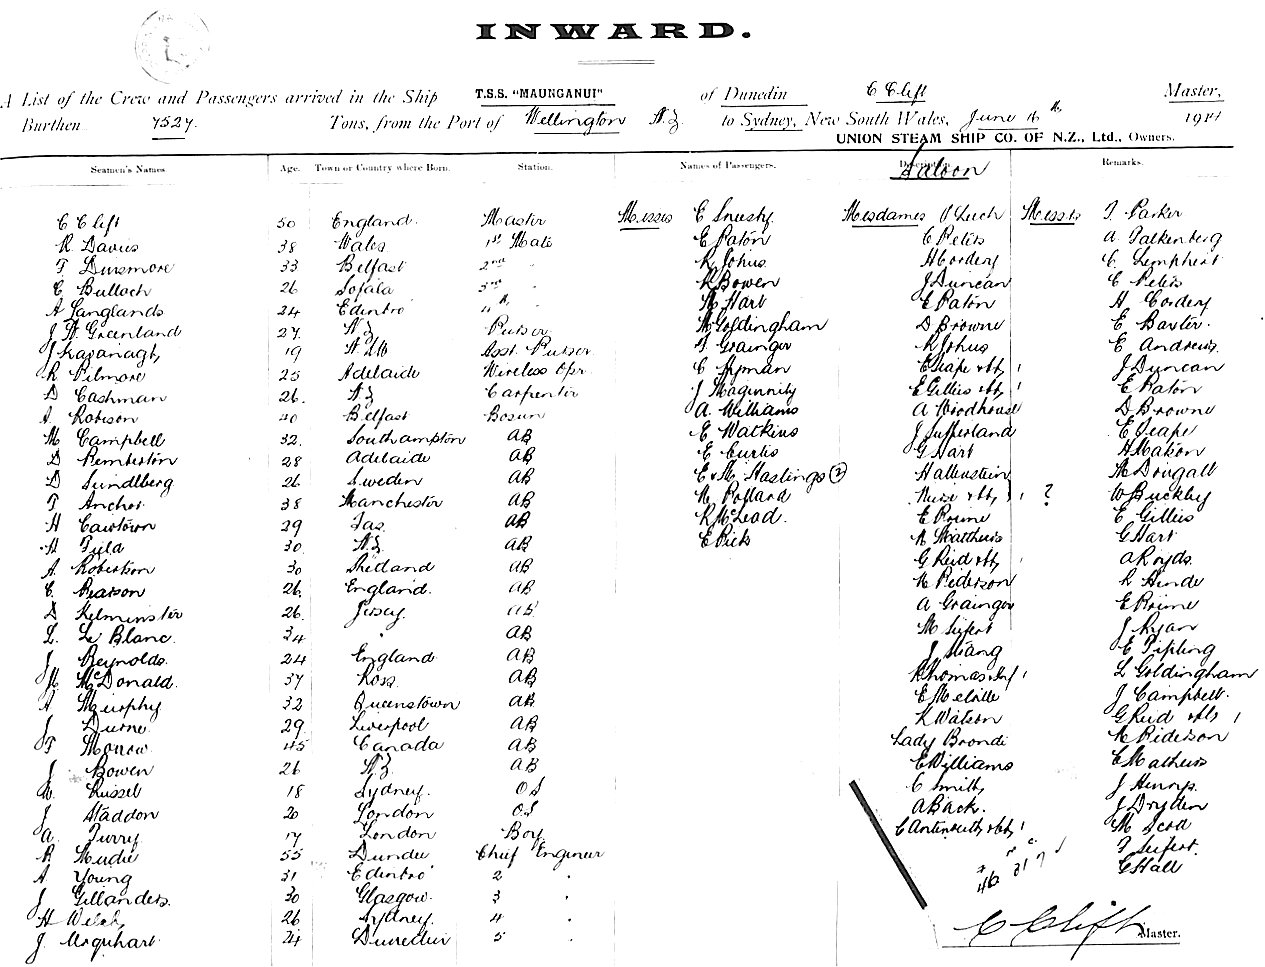 INWARD.
A List of the Crew and Passengers arrived in the Ship T.S.S. "MAUNGANUI" of Dunedin C Clift Master,
Burthen 7527. Tons, from the Port of Wellington N.Z to Sydney, New South Wales, June 16th 191
UNION STEAM SHIP CO. OF N.Z., Ltd., Owners.
Seamen's Names Age. Town or Country where Born. Station. Names of Passengers. Description. Saloon Remarks.
C Clift 50 England. Master Messrs C Mesdames Leech Messrs T Parker
R Davies 38 Wales 1st Mate E Paton C Peters A Falkenberg
T Dinsmore 33 Belfast 2nd " R Johns H Cordery C
C Bulloch 26 Sofala 3rd " R Bowen J Duncan C Peters
A Langlands 24 Edinbro 4th " Hart E Paton H Cordery
J W Greenland 27 NZ Purser Goldingham D Browne E Baxter.
J Kavanagh 19 Asst. Purser Grainger R Johns E Andrews
R Pilmore 25 Adelaide Wireless Opr. C Hyman J Duncan
D Cashman 26. NZ Carpenter J Maginnity E Gillies E Paton
A Robison 40 Belfast Bosun A. Williams A Woodhouse D Browne
M Campbell 32. Southampton AB E Watkins J Sutherland E
D Pemberton 28 Adelaide AB E Curtis G Hart
D Sundlberg 26 Sweden AB E & M Hastings (2) Hallenstein McDougall
T Anchor 38 Manchester AB Pollard Nurse ? W Buckley
H 29 Tas. AB R McLeod. E Prime E Gillies
30. NZ AB E Pick Matthews G Hart
A. Robertson 30 Shetland AB G Reid A Royds.
C. Pearson 26. England. AB Pederson R Hinde
D Kelminster 26. Jersey. AB A Grainger E Prime
L. Le Blanc. 34 " AB M Seifert J Ryan
J Reynolds. 24 England AB J Stang E Tipling
McDonald. 37 Ross. AB Thomas L Goldingham
A Murphy 32 Queenstown AB E Melville J Campbell.
J 29 Liverpool AB R Watson G Reid 1
T Morrow 45 Canada AB Lady Brondi Pederson
J Bowen 26 NZ AB E Williams E Mathews
Russel 18 Sydney. OS C Smith J Henrys
J Haddon 20 London OS A Back. J Dryden
A. 17 London Boy M
R Mudie 55 Dundee Chief Engineer Seifert.
A Young 31 Edinbro 2 " G Hall
J Gillanders. 30 Glasgow. 3 "
H Welch 26 Sydney. 4 "
J. Urquhart 24 Dunedin 5 "
C Clift Master.